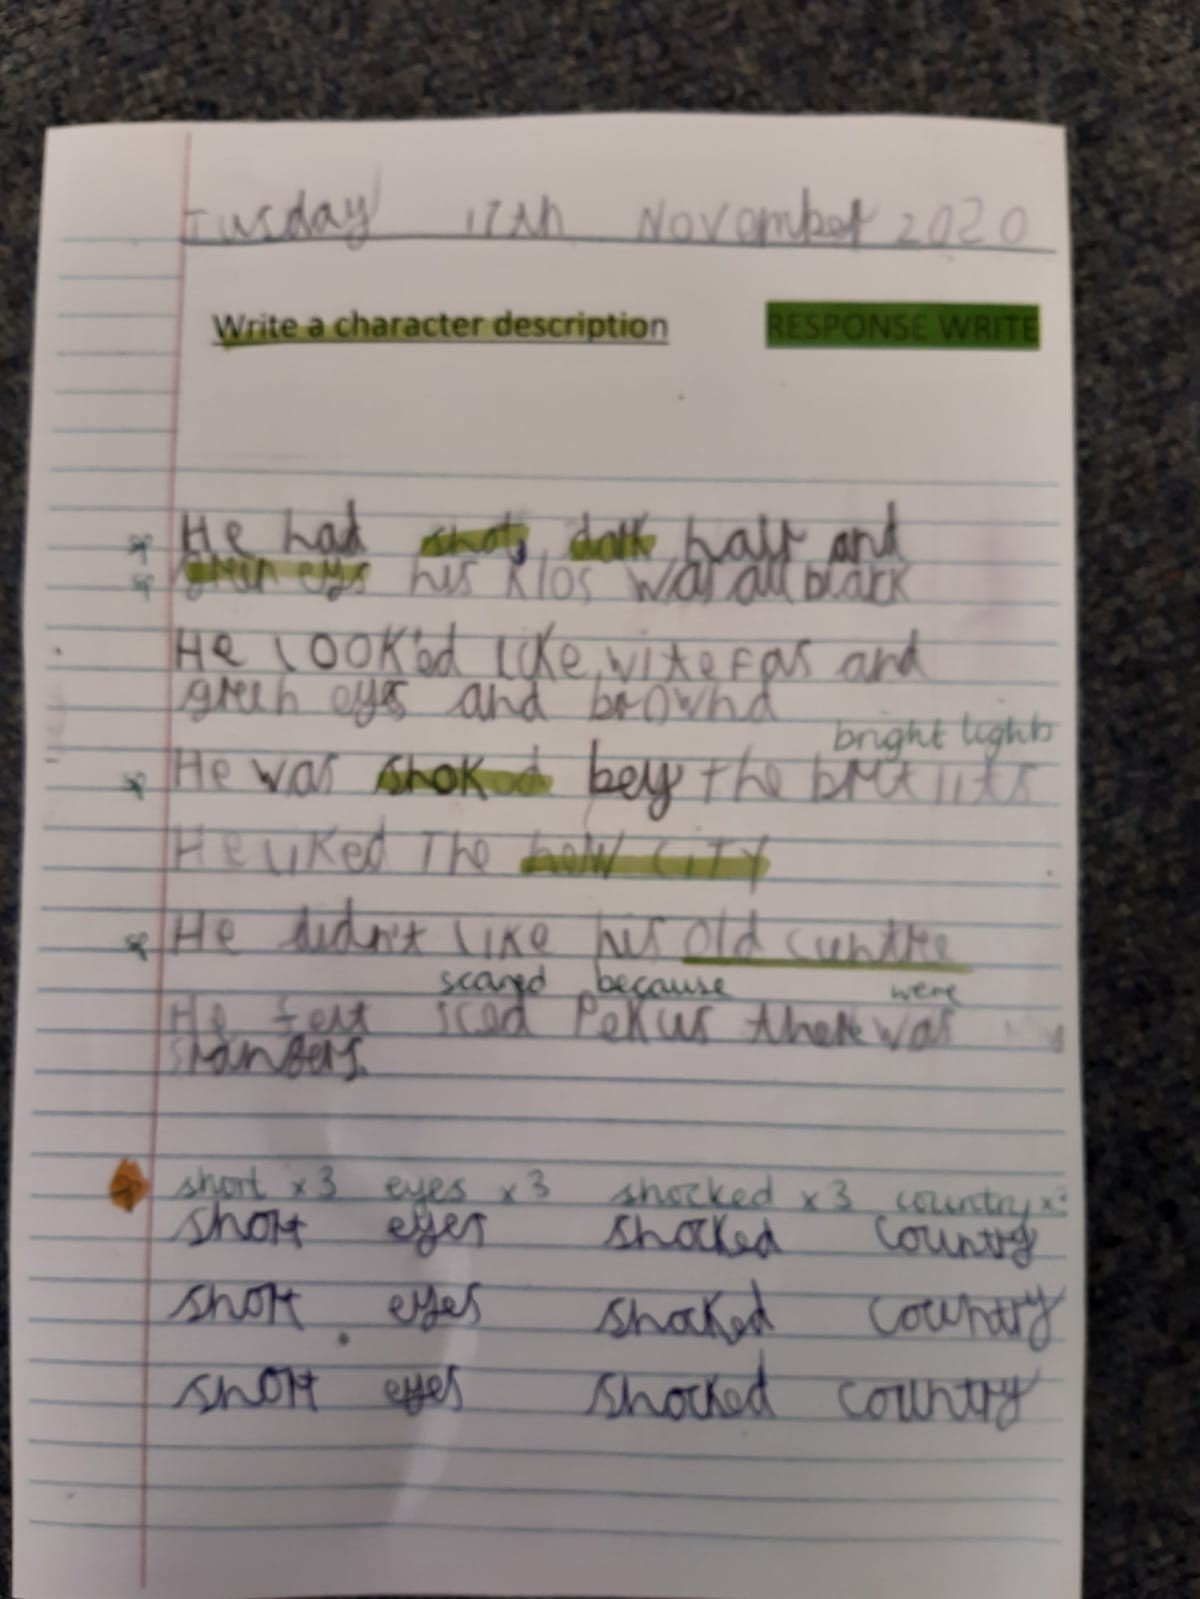 Tusday 17th November 2020
Write a character description RESPONSE WRITE
He had shot, dark hair and
green eys his klos was all black
He look'ed like wite fas and
green eyes and brownd
bright lights
He was shoked bey the
He liked The new CiTY
He didn't like his old cuntree
scared because were
He felt sced Pekus there was
srangers.
short x3 eyes x3 shocked x3 country x3
short eyes shocked country
short eyes shocked country
short eyes shocked country